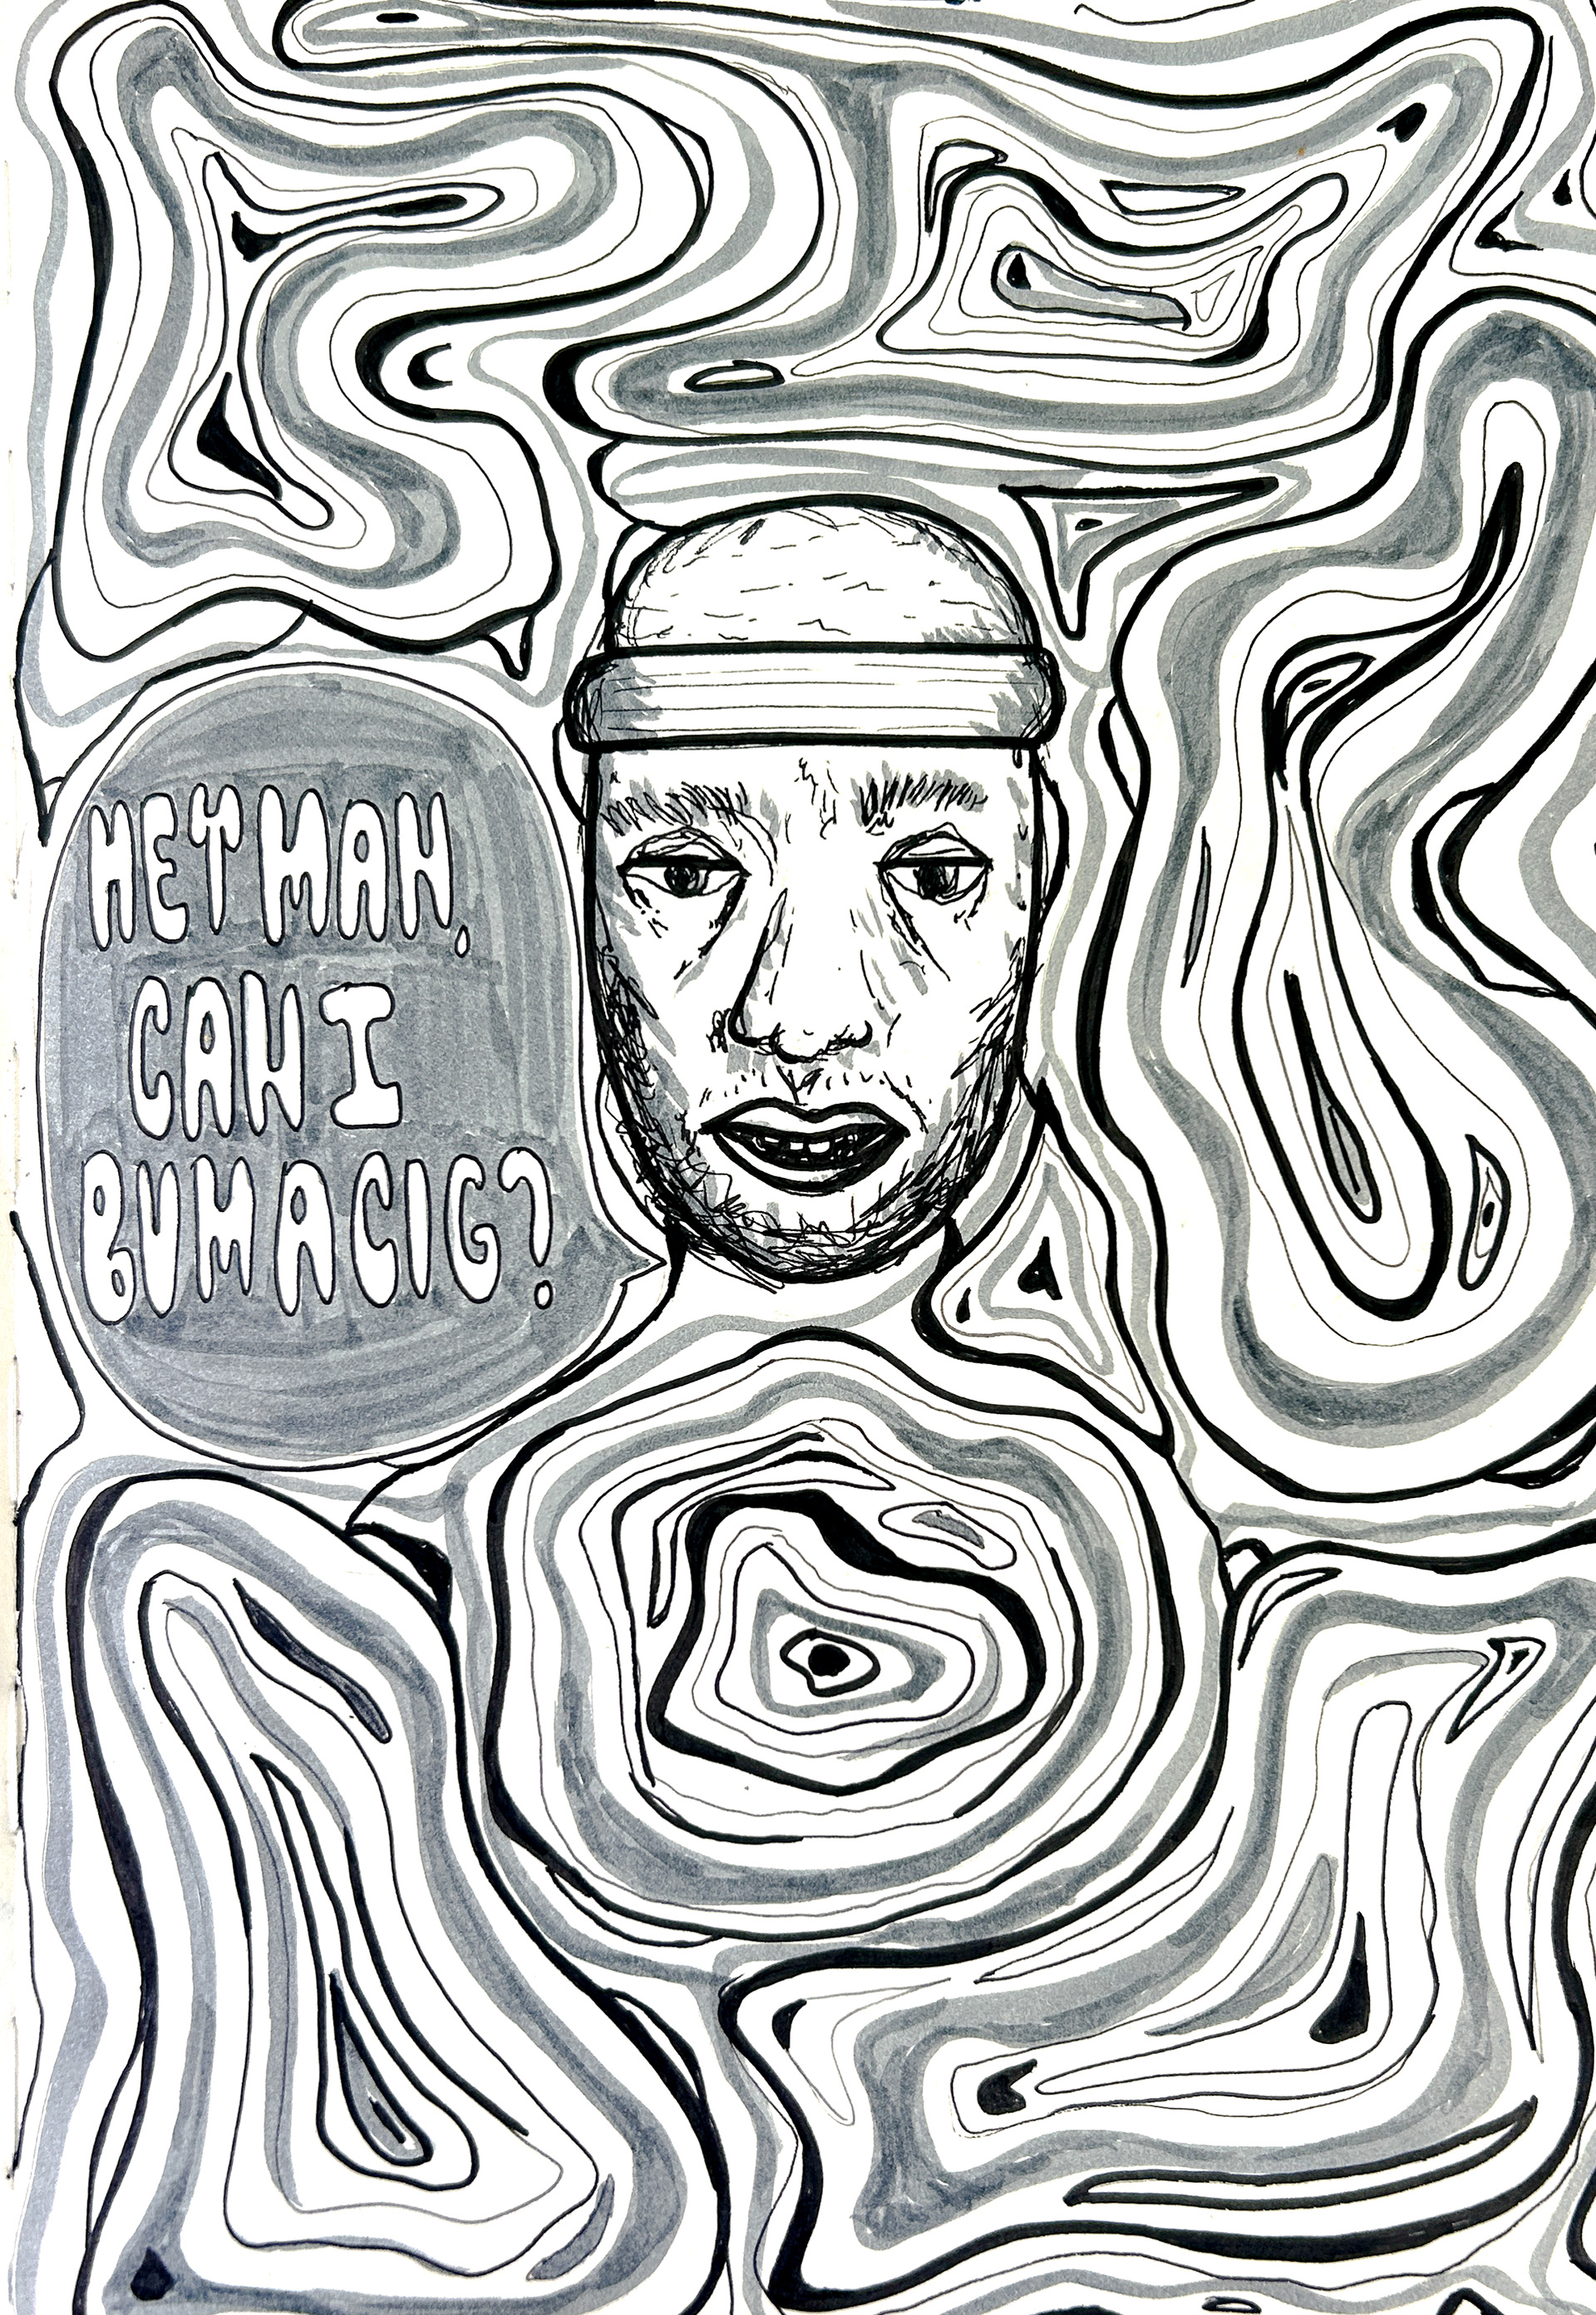 HEY MAN,
CAN I
BUM A CIG?